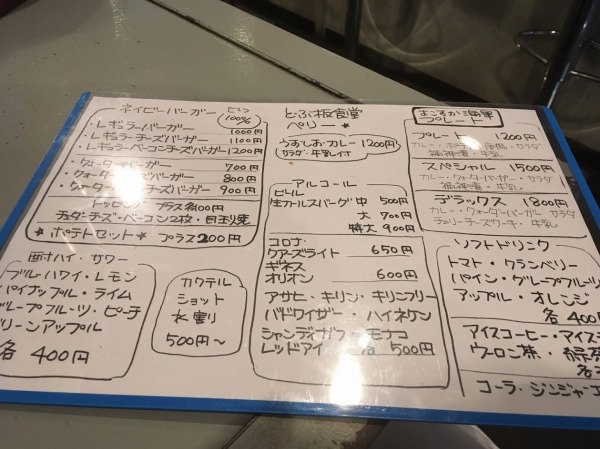 ネイビーバーガー ビーフ100%
・レギュラーバーガー 1000円
・レギュラーチーズバーガー 1100円
・レギュラーベーコンチーズバーガー 1200円
・クォーターバーガー 700円
・クォーター チーズバーガー 800円
・クォーター チーズバーガー 900円
トッピング プラス各100円
チェダーチーズ・ベーコン2枚・目玉焼
★ポテトセット★ プラス200円
酎ハイ・サワー
ブルーハワイ・レモン
パイナップル・ライム
グレープフルーツ・ピーチ
グリーンアップル
各 400円
カクテル
ショット
水割り
500円〜
どぶ板食堂
ペリー ★
よこすかカレー 1200円
サラダ・牛乳付
アルコール
ビール
生カールスバーグ 中 500円
大 700円
特大 900円
コロナ
クアーズライト 650円
ギネス
オリオン 600円
アサヒ・キリン・キリンフリー
バドワイザー・ハイネケン
シャンディガフ・モナコ
レッドアイ 各 500円
よこすか海軍
プレート
プレート 1200円
カレー・サラダ
福神漬・牛乳
スペシャル 1500円
カレー・クォーターバーガー・サラダ
福神漬・牛乳
デラックス 1800円
カレー・クォーターバーガー サラダ
チェリーチーズケーキ・牛乳
ソフトドリンク
トマト・クランベリー
パイン・グレープフルーツ
アップル・オレンジ
各 400円
アイスコーヒー・アイス
ウーロン茶・緑茶
コーラ・ジンジャー